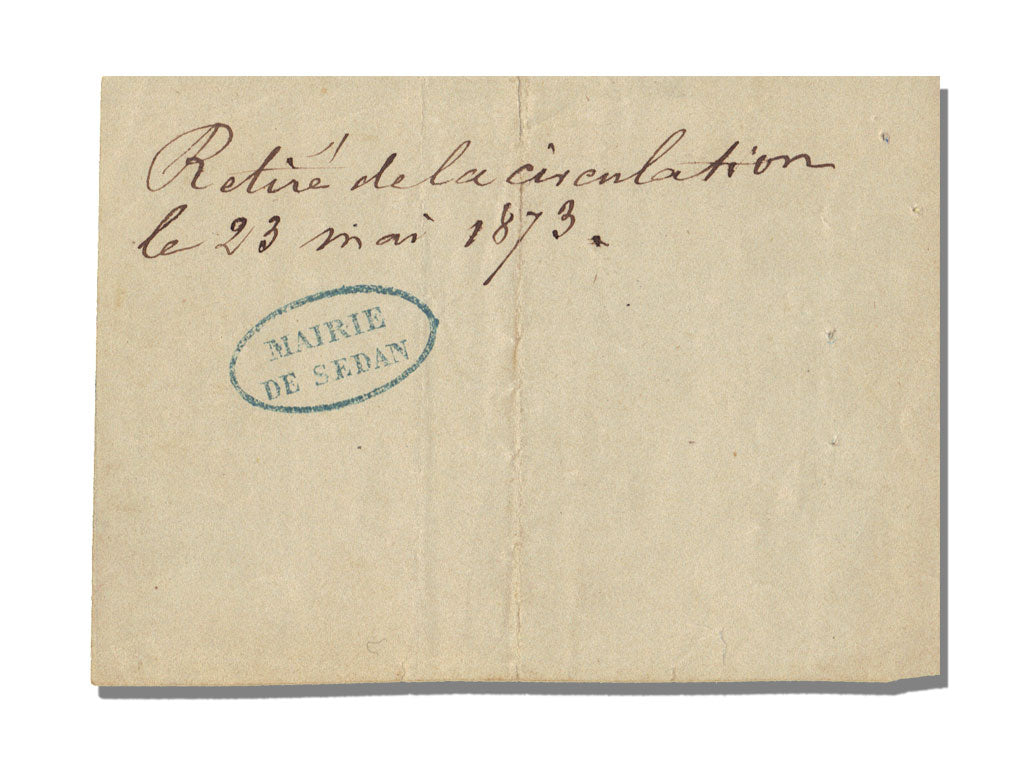 Retiré de la circulation
le 23 mai 1873.
MAIRIE
DE SEDAN